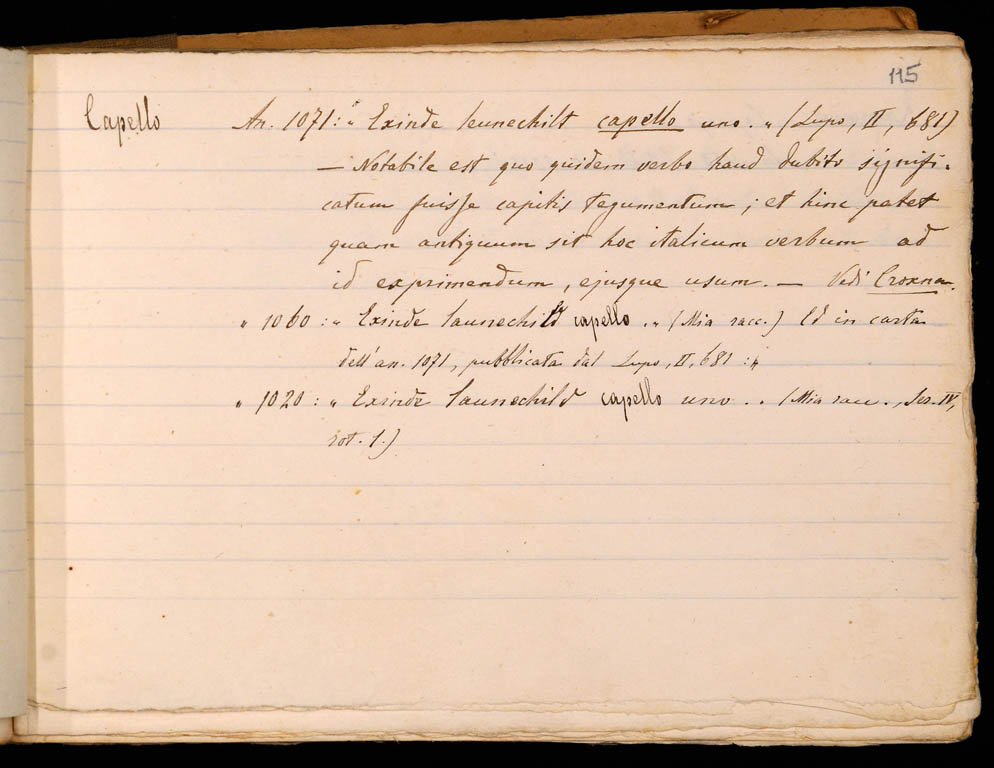 115
Capello An. 1071: „ Exinde leunechilt capello uno. „ (Lupo, II, 681)
— Notabile est quo quidem verbo haud dubito signifi-
catum fuisse capitis tegumentum; et hinc patet
quam antiquum sit hoc italicum verbum ad
id exprimendum, ejusque usum. — Vedi Croxna.
„ 1060: „ Exinde launechild capello. „ (Mia racc.) Ed in carta
dell'an. 1071, pubblicata dal Lupo, II, 681: „
„ 1020: „ Exinde launechild capello uno. „ (Mia racc., Ser. IV,
rot. 1.)